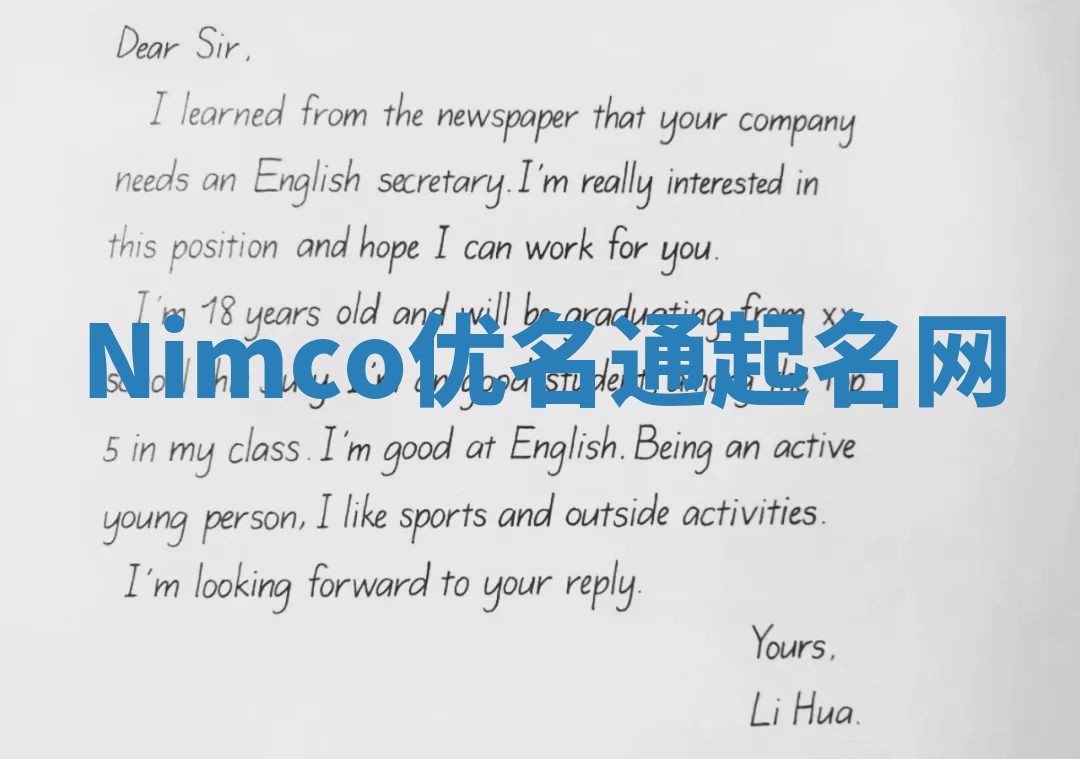 Dear Sir,
I learned from the newspaper that your company
needs an English secretary. I'm really interested in
this position and hope I can work for you.
I'm 18 years old and will be graduating from xx
Nimco优名通起名网
school this July. I'm an good student, among the top
5 in my class. I'm good at English. Being an active
young person, I like sports and outside activities.
I'm looking forward to your reply.
Yours,
Li Hua.